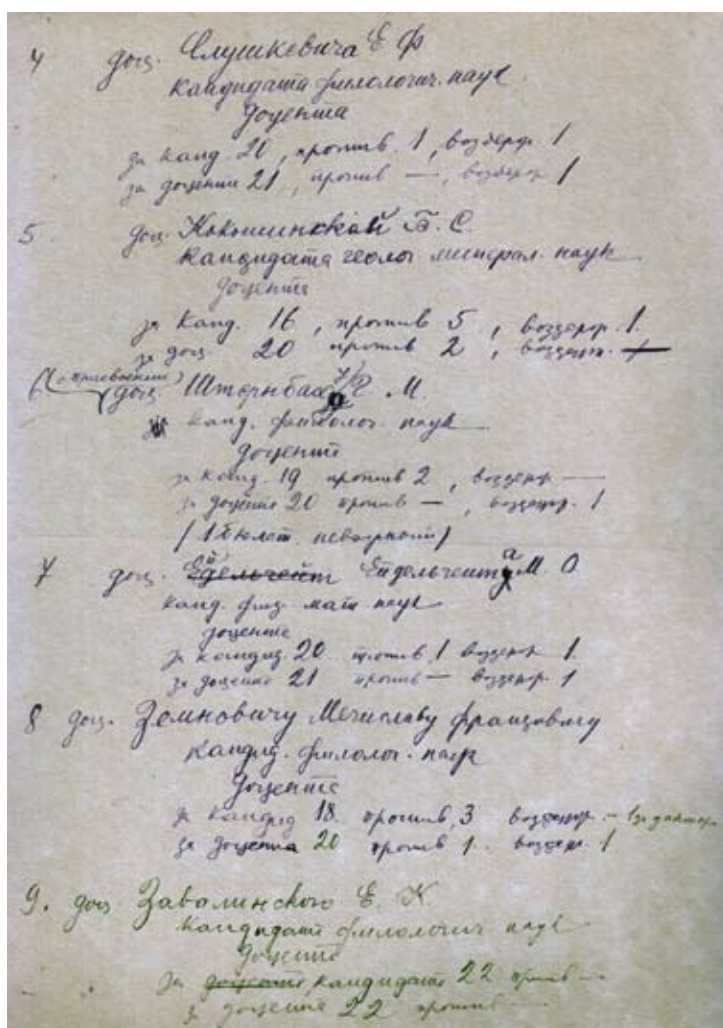 4 доц. Слушкевича Е Ф
кандидата филологич. наук
доцента
за канд. 20, против. 1, воздерж. 1
за доцента 21, против —, воздерж. 1
5 доц. Кокошинской Б. С.
кандидата геолог минерал. наук
доцента
за канд. 16, против 5, воздерж. 1.
за доц. 20 против 2, воздерж.
(о присвоении)
доц. М.
канд. филолог. наук
доцента
за канд. 19 против 2, воздерж —
за доцента 20 против —, воздерж. 1
(1 бюлет.
7 доц. М. О
канд. физ. мат наук
доцента
за кандид 20 против 1 воздерж 1
за доцента 21 против — воздерж. 1
8 доц. Земновичу Мечиславу Францовичу
кандид. филолог. наук
доцента
за кандид 18. против 3 воздерж —
за доцента 20 против 1. воздерж. 1
9. доц Завалинского Е. К
кандидата филологич. наук
доцента
за доцента кандидата 22 против —
за доцента 22 против —